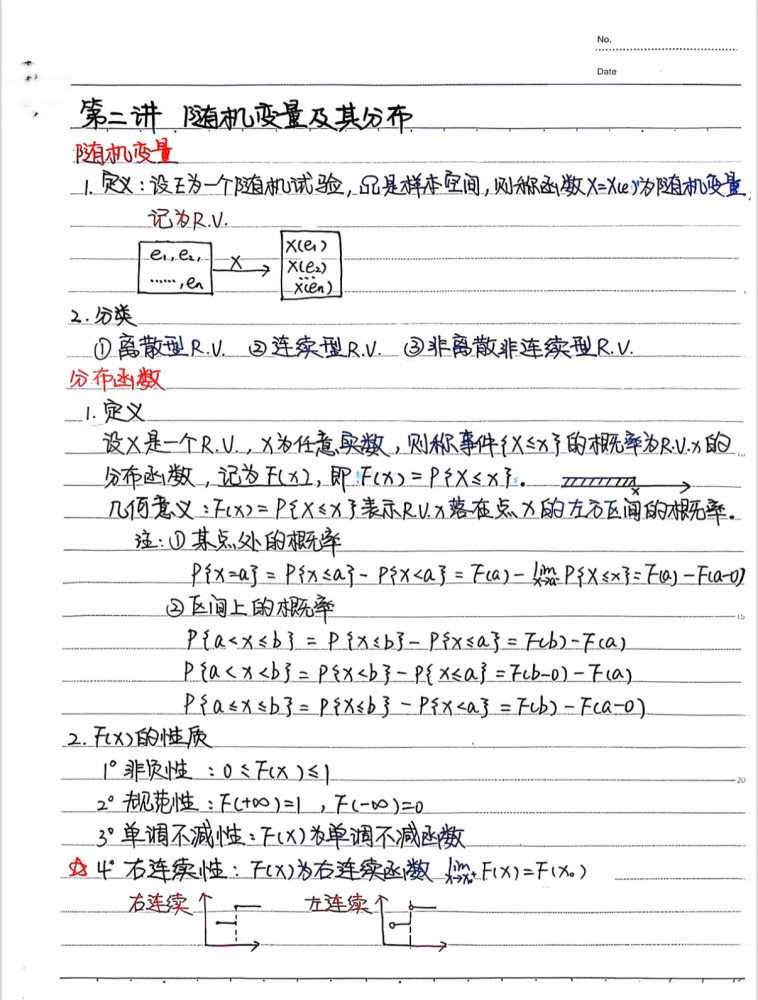 No.
Date
第二讲 随机变量及其分布
随机变量
1. 定义：设E为一个随机试验，Ω是样本空间，则称函数X=X(e)为随机变量，
记为R.V.
e₁, e₂,
……, eₙ
X
X(e₁)
X(e₂)
…
X(eₙ)
2. 分类
① 离散型R.V. ② 连续型R.V. ③ 非离散非连续型R.V.
分布函数
1. 定义
设X是一个R.V.，x为任意实数，则称事件{X≤x}的概率为R.V.x的
分布函数，记为F(x)，即F(x)=P{X≤x}。
x
几何意义：F(x)=P{X≤x}表示R.V.x落在点x的左方区间的概率。
注：① 某点处的概率
P{x=a} = P{x≤a} - P{x<a} = F(a) - lim x→a⁻ P{X≤x} = F(a) - F(a-0)
② 区间上的概率
15
P{a<x≤b} = P{x≤b} - P{x≤a} = F(b) - F(a)
P{a<x<b} = P{x<b} - P{x≤a} = F(b-0) - F(a)
P{a≤x≤b} = P{x≤b} - P{x<a} = F(b) - F(a-0)
2. F(x)的性质
1° 非负性：0≤F(x)≤1
20
2° 规范性：F(+∞)=1，F(-∞)=0
3° 单调不减性：F(x)为单调不减函数
☆ 4° 右连续性：F(x)为右连续函数 lim x→x₀⁺ F(x)=F(x₀)
右连续 左连续